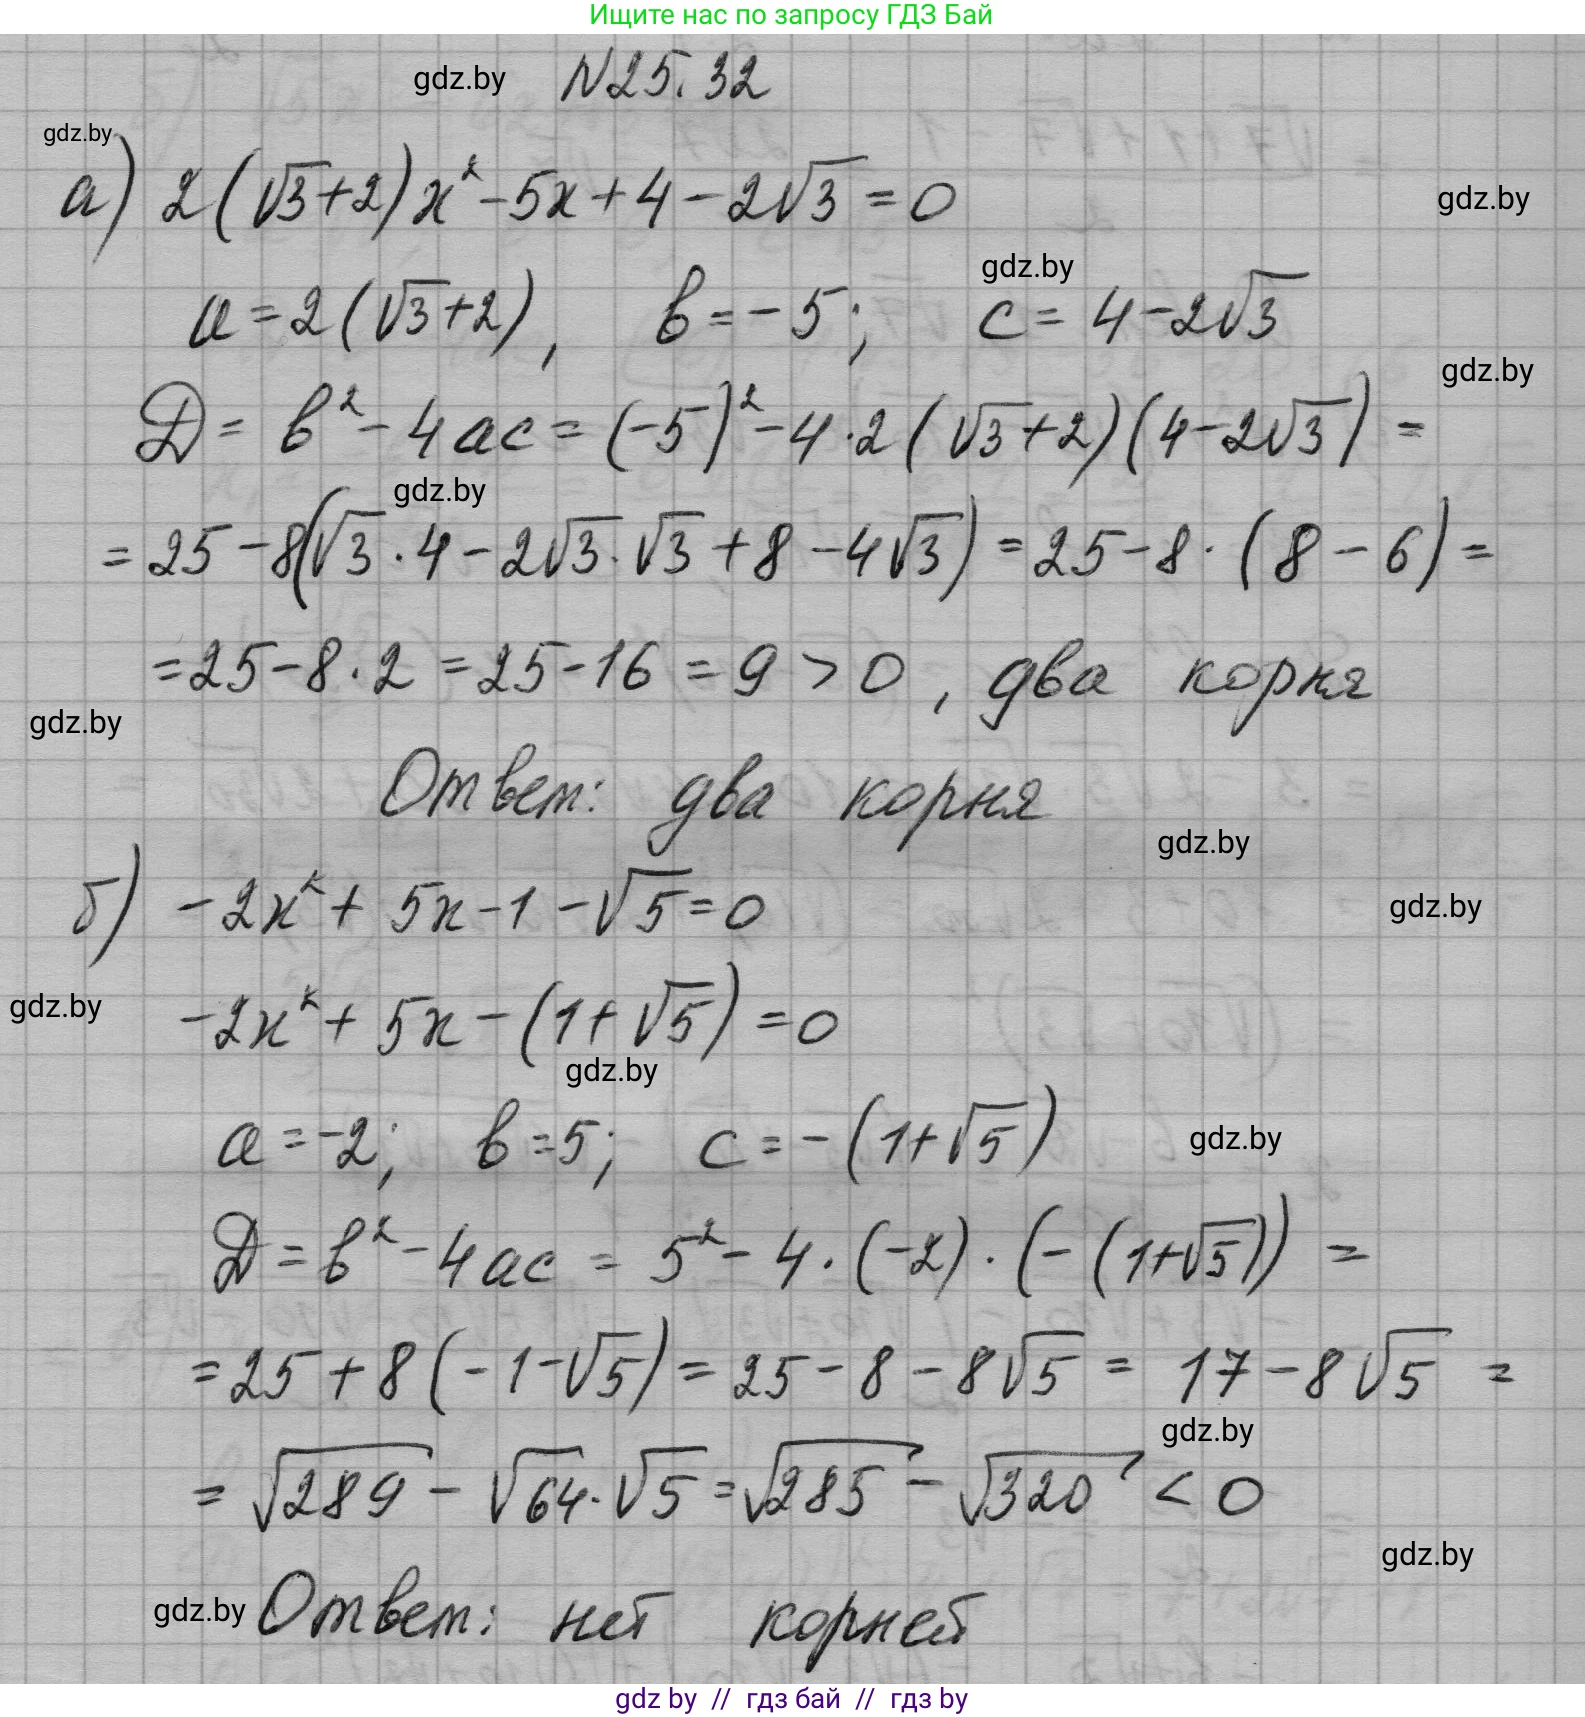 Ищите нас по запросу ГДЗ Бай
gdz.by N25.32
gdz.by
а) 2(√3+2)x² - 5x + 4 - 2√3 = 0 gdz.by
gdz.by
a = 2(√3+2), b = -5; c = 4 - 2√3
gdz.by
D = b² - 4ac = (-5)² - 4·2(√3+2)(4-2√3) =
gdz.by
= 25 - 8(√3·4 - 2√3·√3 + 8 - 4√3) = 25 - 8·(8 - 6) =
= 25 - 8·2 = 25 - 16 = 9 > 0, два корня
gdz.by
Ответ: два корня
gdz.by
б) -2x² + 5x - 1 - √5 = 0 gdz.by
gdz.by -2x² + 5x - (1+√5) = 0
gdz.by
a = -2; b = 5; c = -(1+√5) gdz.by
D = b² - 4ac = 5² - 4·(-2)·(-(1+√5)) =
= 25 + 8(-1-√5) = 25 - 8 - 8√5 = 17 - 8√5 =
gdz.by
= √289 - √64·√5 = √285 - √320 < 0
gdz.by
gdz.by Ответ: нет корней
gdz by // гдз бай // gdz by